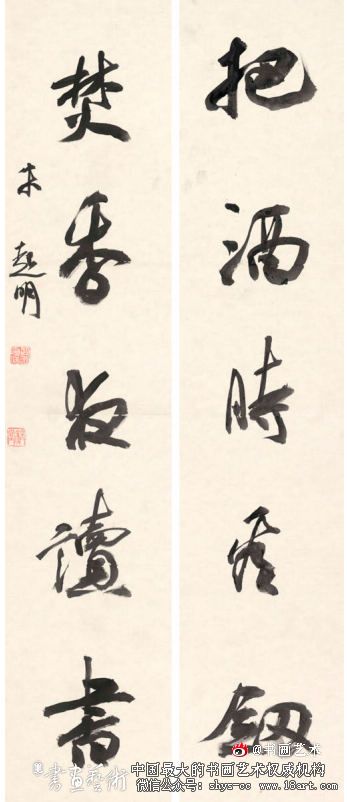 把酒時看釼
焚香夜讀書
明
@书画艺术
書畫藝術
中国最大的书画艺术权威机构
微信公众号：shys-cc www.18art.com